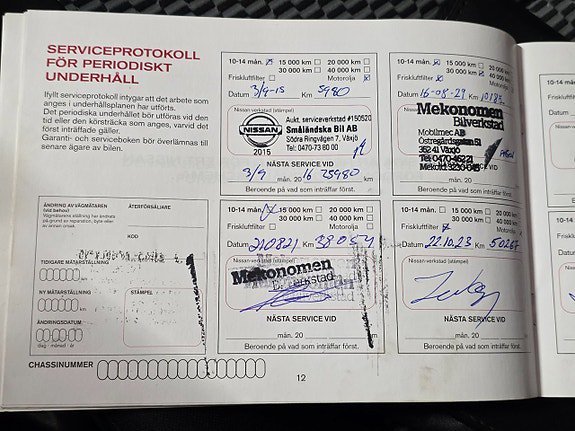 SERVICEPROTOKOLL
FÖR PERIODISKT
UNDERHÅLL
Ifyllt serviceprotokoll intygar att det arbete som
anges i underhållsplanen har utförts.
Det periodiska underhållet bör utföras vid den
tid eller den körsträcka som anges, varvid det
först inträffade gäller.
Garanti- och serviceboken bör överlämnas till
senare ägare av bilen.
10-14 mån. 15 000 km 20 000 km
30 000 km 40 000 km
Friskluftfilter Motorolja
Datum 3/9-15 Km 5980
Nissan-verkstad (stämpel)
NISSAN
2015
Aukt. serviceverkstad #150520
Småländska Bil AB
Södra Ringvägen 7, Växjö
Tel: 0470-73 80 00
NÄSTA SERVICE VID
3/9 mån. 20 16 25980 km
Beroende på vad som inträffar först.
10-14 mån. 15 000 km 20 000 km
30 000 km 40 000 km
Friskluftfilter Motorolja
Datum 16-08-29 Km
Nissan-verkstad (stämpel)
Mekonomen
Bilverkstad
Mobilmec AB
Östregårdsgatan 51
352 41 Växjö
Tel: 0470-46221
NÄSTA SERVICE VID
mån. 20 km
Beroende på vad som inträffar först.
ÄNDRING AV VÄGMÄTAREN
(vid behov)
Vägmätarens ställning har ändrats
på grund av reparation, byte eller
av annan orsak.
ÅTERFÖRSÄLJARE
KOD
TIDIGARE MÄTARSTÄLLNING
km
NY MÄTARSTÄLLNING
km
ÄNDRINGSDATUM:
dag - månad - år
STÄMPEL
10-14 mån. 15 000 km 20 000 km
30 000 km 40 000 km
Friskluftfilter Motorolja
Datum 210821 Km 38054
Nissan-verkstad (stämpel)
Mekonomen
Bilverkstad
NÄSTA SERVICE VID
mån. 20 km
Beroende på vad som inträffar först.
10-14 mån. 15 000 km 20 000 km
30 000 km 40 000 km
Friskluftfilter Motorolja
Datum 22.10.23 Km 50267
Nissan-verkstad (stämpel)
NÄSTA SERVICE VID
mån. 20 km
Beroende på vad som inträffar först.
CHASSINUMMER
12